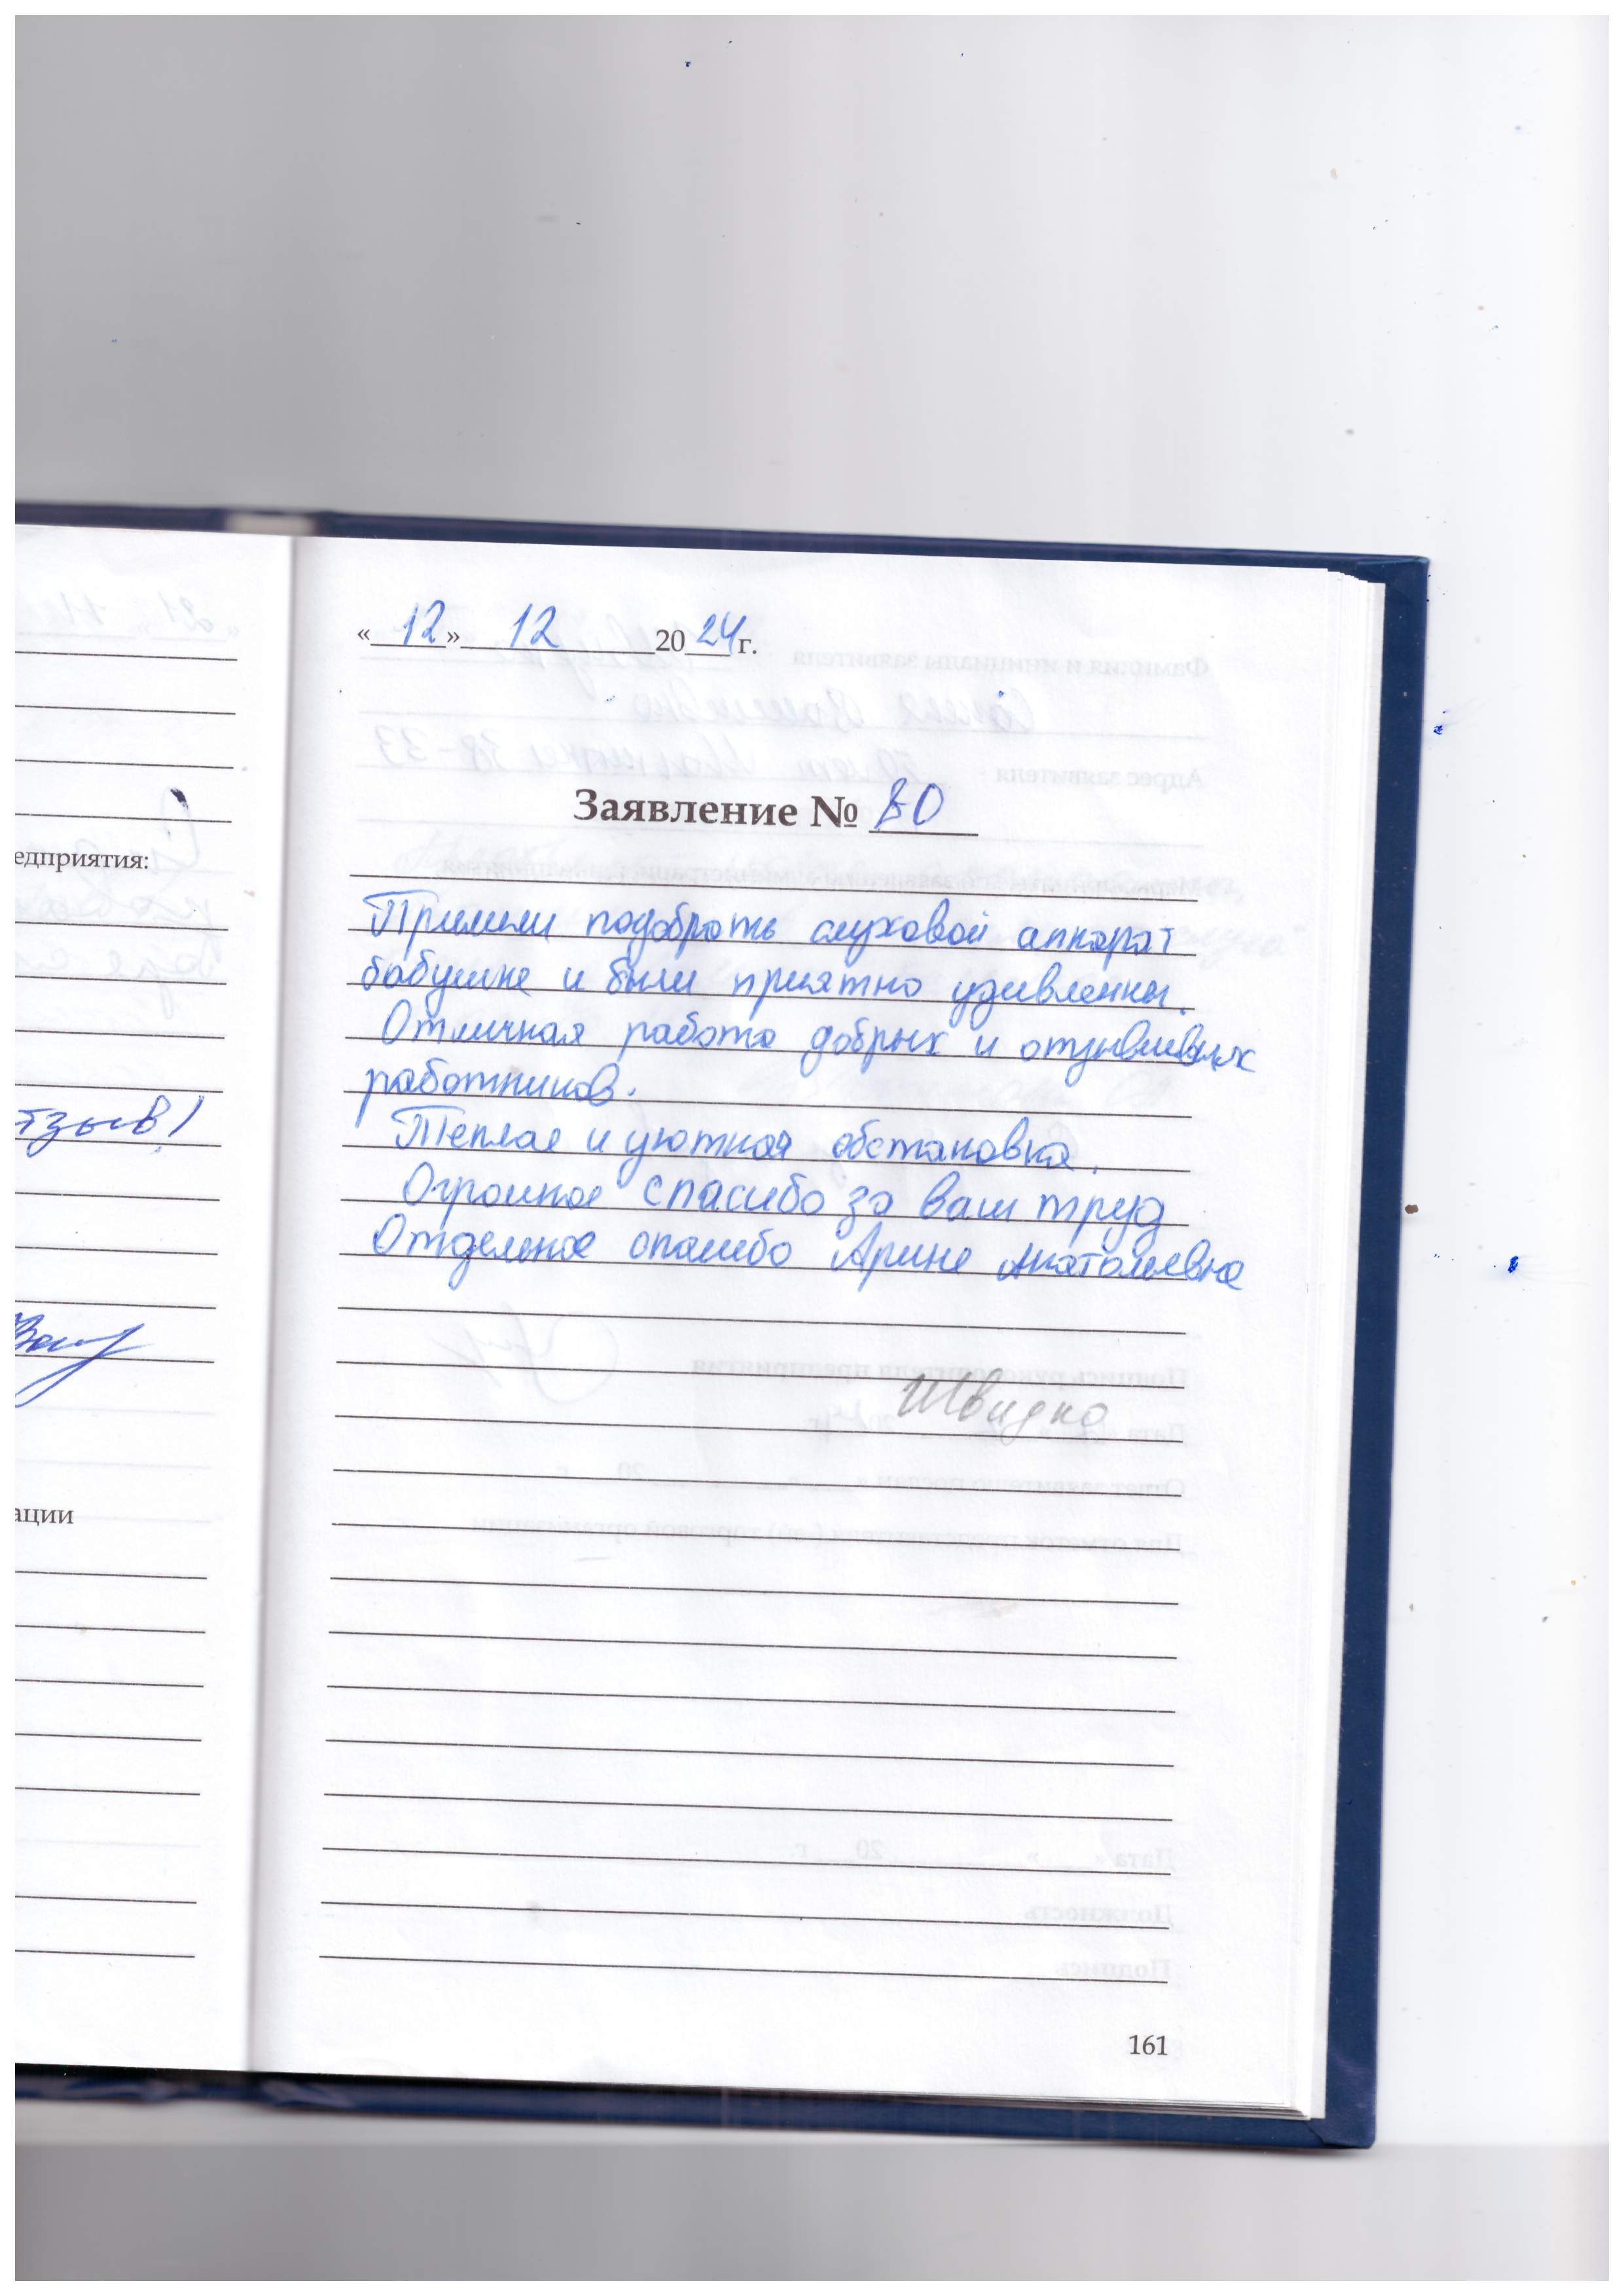 «12» 12 2024 г.
Заявление № 80
Пришли подобрать слуховой аппарат
бабушке и были приятно удивленны.
Отличная работа добрых и отзывчивых
работников.
Теплая и уютная обстановка.
Огромное спасибо за ваш труд
Отдельное спасибо Арине Анатольевне
Швидко
161
едприятия:
тзыв!
ации